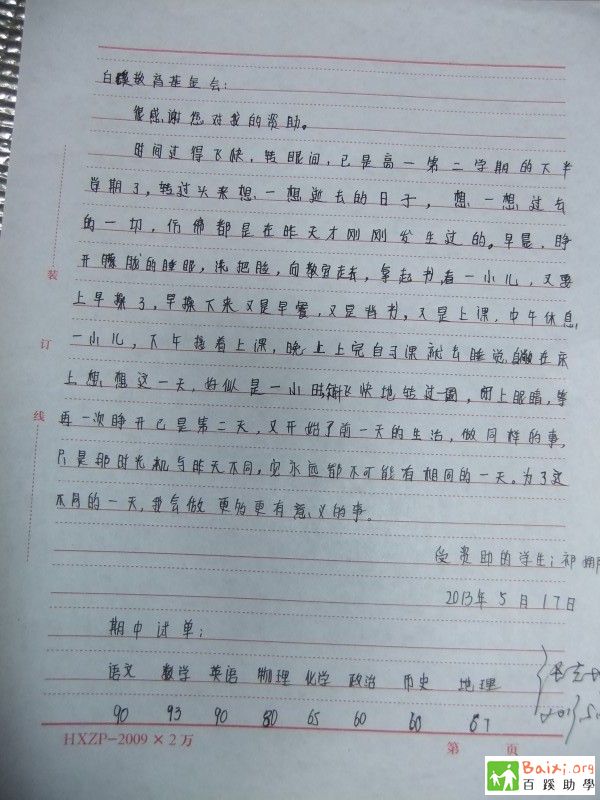 百蹊教育基金会:
很感谢您对我的资助。
时间过得飞快,转眼间,已是高一第二学期的下半
学期了,转过头来想一想逝去的日子,想一想过去
的一切,仿佛都是在昨天才刚刚发生过的。早晨,睁
开朦胧的睡眼,洗把脸,向教室走去,拿起书,看一小儿,又要
上早操了,早操下来又是早餐,又是背书,又是上课,中午休息
一小儿,下午接着上课,晚上上完自习课就去睡觉,自躺在床
上想想这一天,好似是一小时般飞快地转过一圈,闭上眼睛,等
再一次睁开已是第二天,又开始了前一天的生活,做同样的事,
只是那时光机与昨天不同,它永远都不可能有相同的一天。为了这
不同的一天,我会做更多更有意义的事。
受资助的学生:祁
2013年5月17日
期中试单:
语文 数学 英语 物理 化学 政治 历史 地理
90 93 90 80 65 60 60 87
装
订
线
HXZP-2009×2万
第 页
Baixi.org
百蹊助學